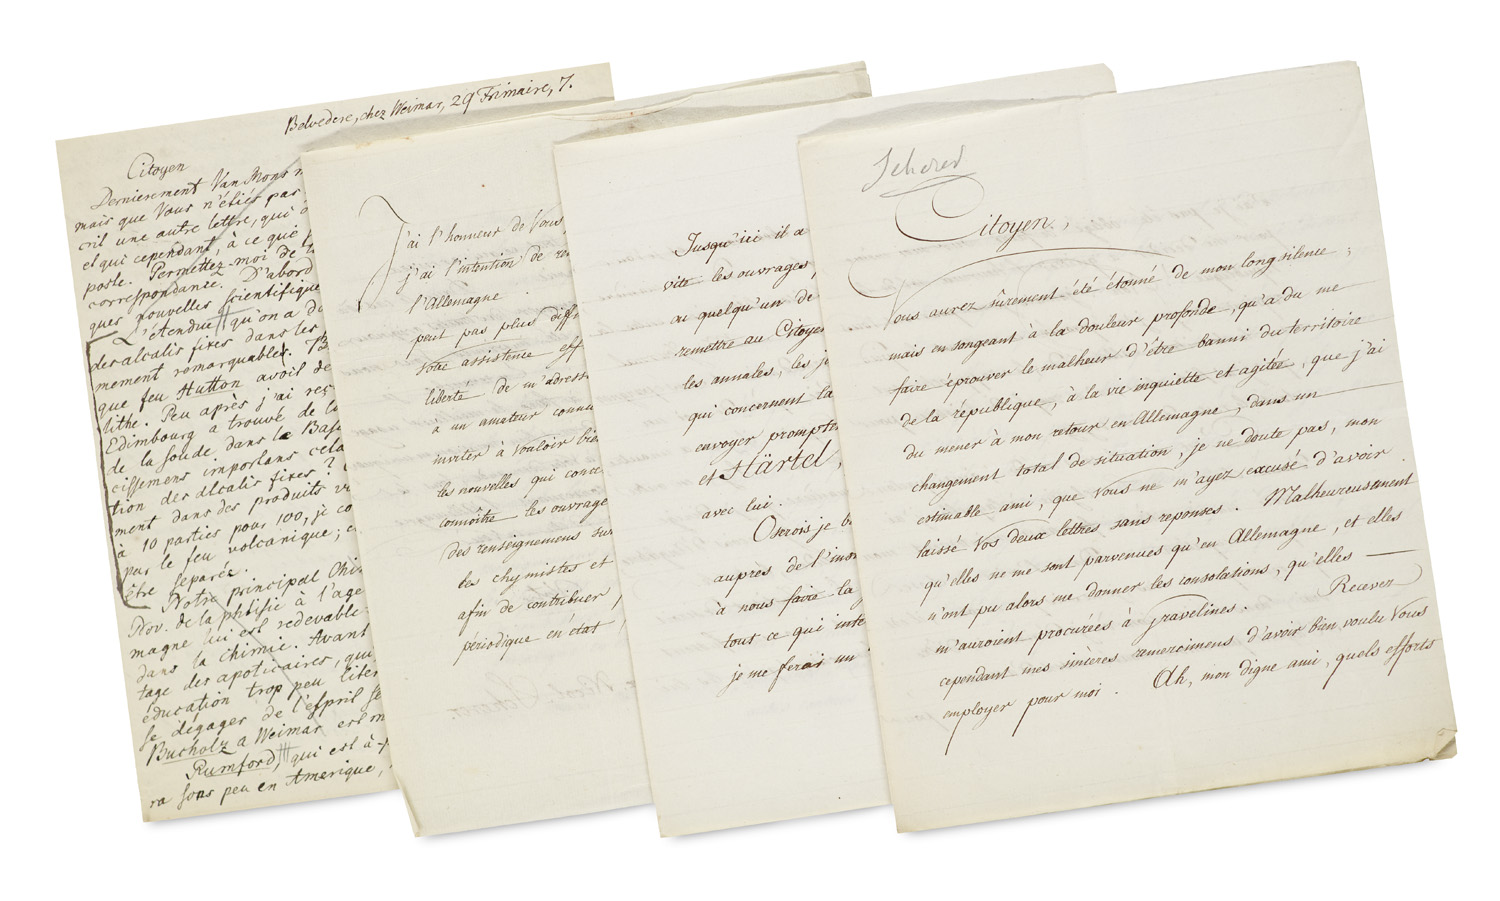 Belvedere, chez Weimar, 29 Frimaire, 7.
Citoyen
Dernierement Van Mons
mais que Vous n'étiés pas
cril une autre lettre, qui
el qui cependant, à ce que
poste. Permettéz-moi de
correspondance. D'abord
ques nouvelles scientifique
L'étendue qu'on a
des alcalis fixes dans les
mement remarquables.
que feu Hutton avoit de
lithe. Peu après j'ai reç
Edimbourg a trouvé de l
de la soude dans la Bas
cissemens importans cela
tion des alcalis fixes?
ment dans des produits v
à 10 parties pour 100, je co
par le feu volcanique; c
être separée.
Notre principal Chi
Nov. de la phtisie à l'age
magne lui est redevable
dans la chimie. Avant
tage des apoticaires, qui
éducation trop peu liter
se dégager de l'esprit se
Bucholz a Weimar est m
Rumford, qui est à-p
ra sous peu en Amerique,
J'ai l'honneur de Vous
j'ai l'intention de re
l'Allemagne
peut pas plus diff
votre assistence eff
liberté de m'adress
à un amateur connu
inviter à vouloir bie
les nouvelles qui conce
connoître les ouvrage
des renseignemens su
les chymistes et
afin de contribuer
périodique en état
Jusqu'ici il a
vite les ouvrages
ou quelqu'un de
remettre au Citoyen
les annales, les jo
qui concernent la
envoyer prompte
et Härtel,
avec lui.
Oserois je b
aupres de l'ins
à nous faire la
tout ce qui inte
je me ferai un
Scherer
Citoyen,
Vous aurez sûrement été étonné de mon long silence;
mais en songeant à la douleur profonde, qu'a du me
faire éprouver le malheur d'être banni du territoire
de la république, à la vie inquiette et agitée, que j'ai
du mener à mon retour en Allemagne, dans un
changement total de situation, je ne doute pas, mon
estimable ami, que Vous ne m'ayez excusé d'avoir
laissé Vos deux lettres sans reponses. Malheureusement
qu'elles ne me sont parvenues qu'en Allemagne, et elles
n'ont pu alors me donner les consolations, qu'elles
m'auroient procurées à Gravelines. Recevez
cependant mes sincères remercimens d'avoir bien voulu Vous
employer pour moi. Ah, mon digne ami, quels efforts